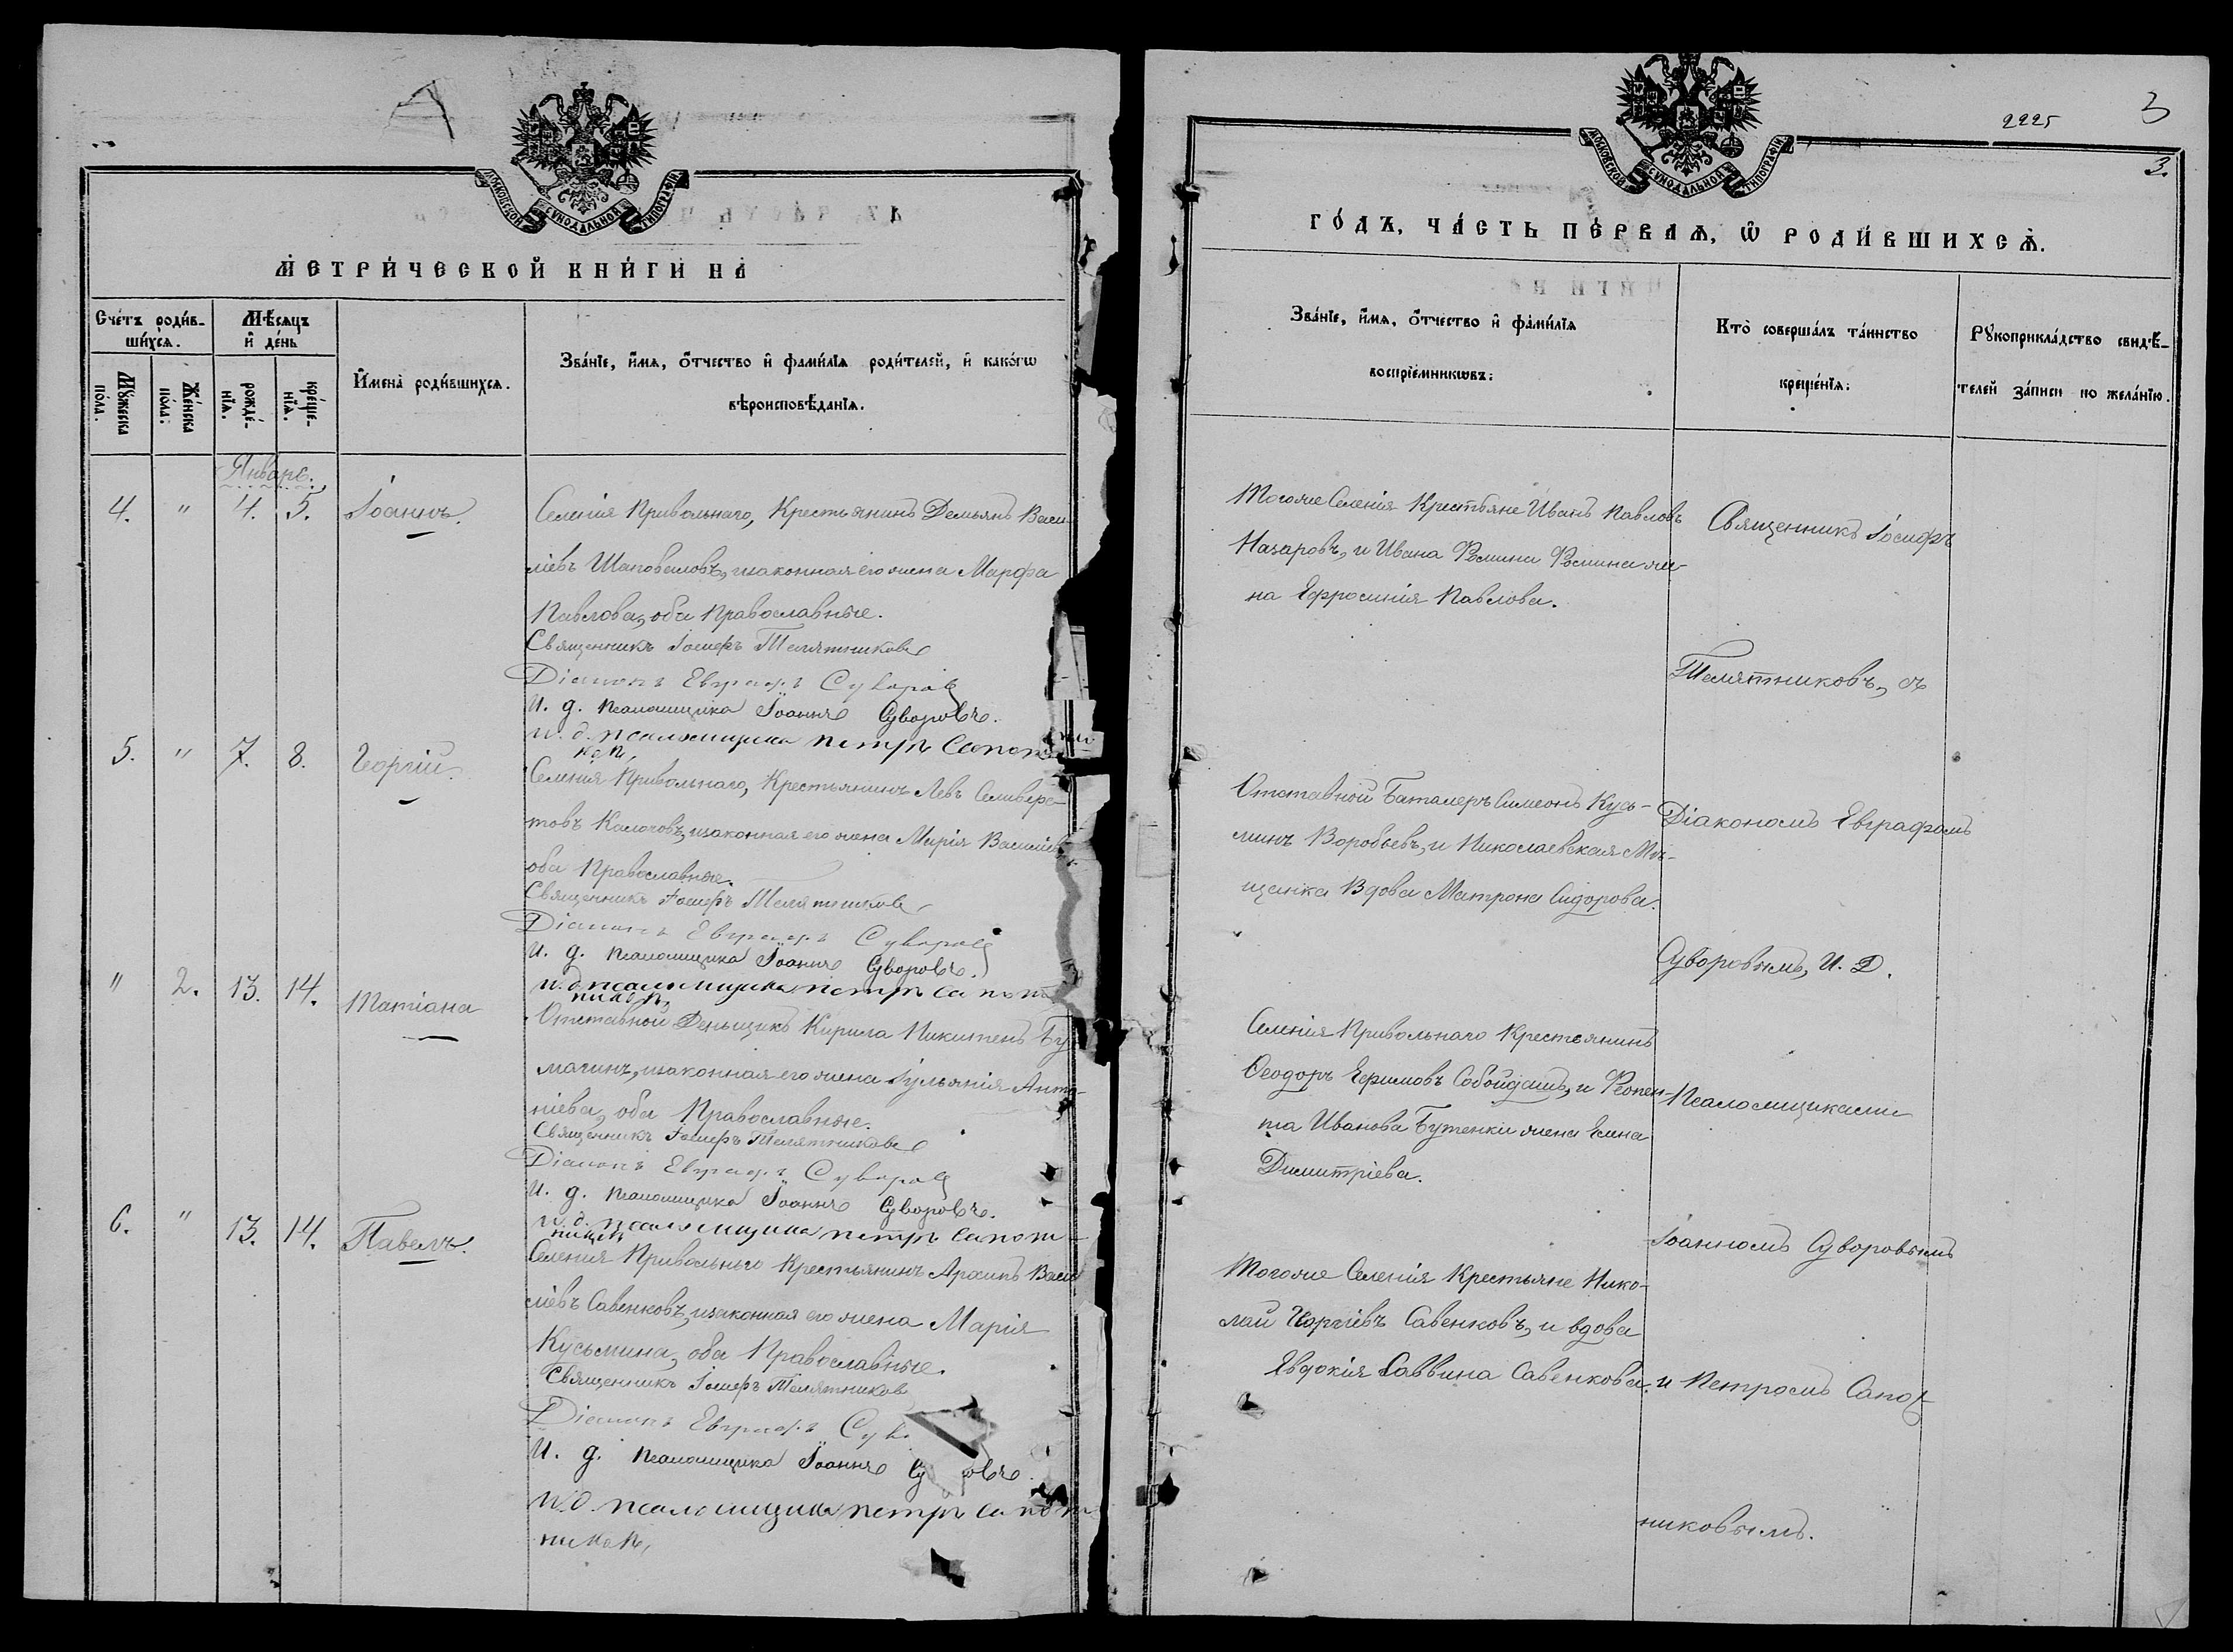 А
МОСКОВСКОЙ СѴНОДАЛЬНОЙ ТИПОГРАФІИ
МЕТРИ́ЧЕСКОЙ КНИ́ГИ НА
Сче́тъ роди́в-
ши́хсѧ.
Мꙋ́жеска
по́ла.
Же́нска
по́ла:
Мѣ́сяцъ
и҆ де́нь
рожде́-
нїѧ.
креще́-
нїѧ.
И҆мена̀ роди́вшихсѧ.
Зва́нїе, и҆́мѧ, ѻ҆́тчество и҆ фами́лїѧ роди́телей, и҆ како́гѡ
вѣроисповѣ́данїѧ.
Январь.
4. " 4. 5. Іоаннъ.
Селенія Привольнаго, Крестьянинъ Демьянъ Васи-
ліевъ Шаповаловъ, изаконная его жена Марфа
Павлова, оба Православные.
Священникъ Іосифъ Телятниковъ
Діаконъ Евграфъ Суворовъ
И. д. псаломщика Іоаннъ Суворовъ.
И. д. псаломщика Петръ Сапож
ковъ,
5. " 7. 8. Георгій.
Селенія Привольнаго, Крестьянинъ Левъ Селиверс-
товъ Калачовъ, изаконная его жена Марія Василіев
оба Православные.
Священникъ Іосифъ Телятниковъ
Діаконъ Евграфъ Суворовъ
И. д. псаломщика Іоаннъ Суворовъ.
И. д. псаломщика Петръ Сапож
никовъ,
" 2. 13. 14. Татіана
Отставной Деньщикъ Кирила Никитенъ Бу
магинъ, изаконная его жена Іульянія Анто-
ніева, оба Православные.
Священникъ Іосифъ Телятниковъ
Діаконъ Евграфъ Суворовъ
И. д. псаломщика Іоаннъ Суворовъ.
И. д. псаломщика Петръ Сапож-
никовъ
6. " 13. 14. Павелъ.
Селенія Привольнаго Крестьянинъ Архипъ Васи
ліевъ Савенковъ, изаконная его жена Марія
Кусьмина, оба Православные.
Священникъ Іосифъ Телятниковъ
Діаконъ Евграфъ Сув
И. д. псаломщика Іоаннъ Су овъ.
И. д. псаломщика Петръ Сапож
никовъ,
2225
3
3.
МОСКОВСКОЙ СѴНОДАЛЬНОЙ ТИПОГРАФІИ
ГО́ДЪ, ЧА́СТЬ ПЕ́РВАѦ, Ѡ РОДИ́ВШИХСѦ.
Зва́нїе, и҆́мѧ, ѻ҆́тчество и҆ фами́лїѧ
воспрїе́мникѡвъ:
Кто̀ соверша́лъ та́инство
креще́нїѧ:
Рꙋкоприкла́дство свидѣ́-
телей за́писи по жела́нїю.
Тогоже Селенія Крестьяне Иванъ Павловъ
Назаровъ, и Ивана Фомина Фомина же-
на Ефросинія Павлова.
Отставной Баталеръ Симеонъ Кусь-
минъ Воробьевъ, и Николаевская Мѣ-
щанка Вдова Матрона Сидорова.
Селенія Привольнаго Крестьянинъ
Ѳеодоръ Ефимовъ Собойдашъ, и Феопен-
та Иванова Бутенки жена Елена
Димитріева.
Тогоже Селенія Крестьяне Нико-
лай Георгіевъ Савенковъ, и вдова
Евдокія Саввина Савенкова.
Священникъ Іосифъ
Телятниковъ, съ
Діакономъ Евграфомъ
Суворовымъ, И. Д.
Псаломщиками
Іоанномъ Суворовымъ
и Петромъ Сапож-
никовымъ.